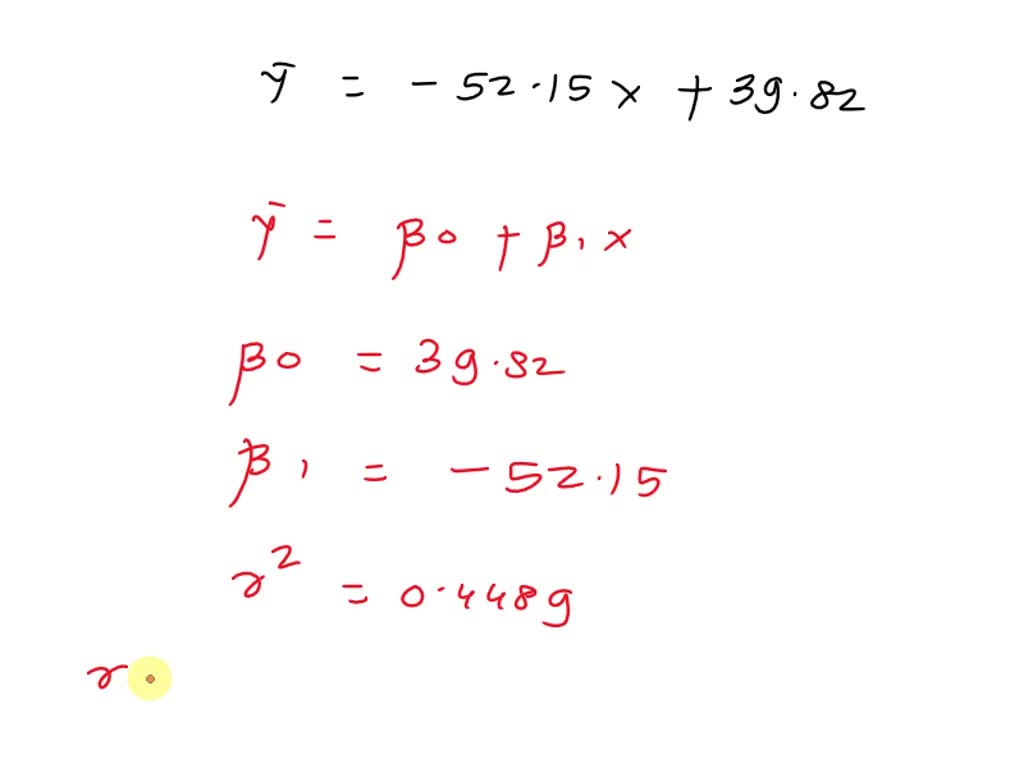 ȳ = - 52.15 x + 39.82
ȳ = β0 + β1 x
β0 = 39.82
β1 = - 52.15
r² = 0.4489
r